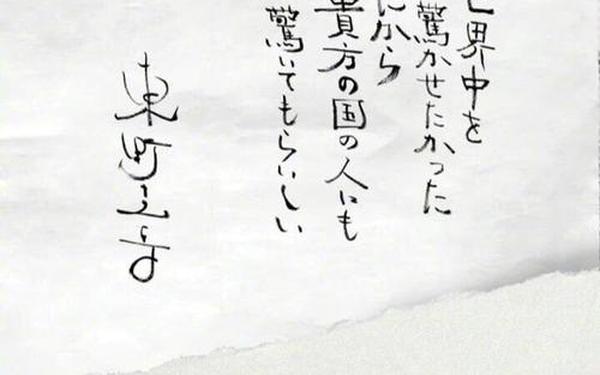 世界中を
驚かせたかった
だから
貴方の国の人にも
驚いてもらいしい
東町